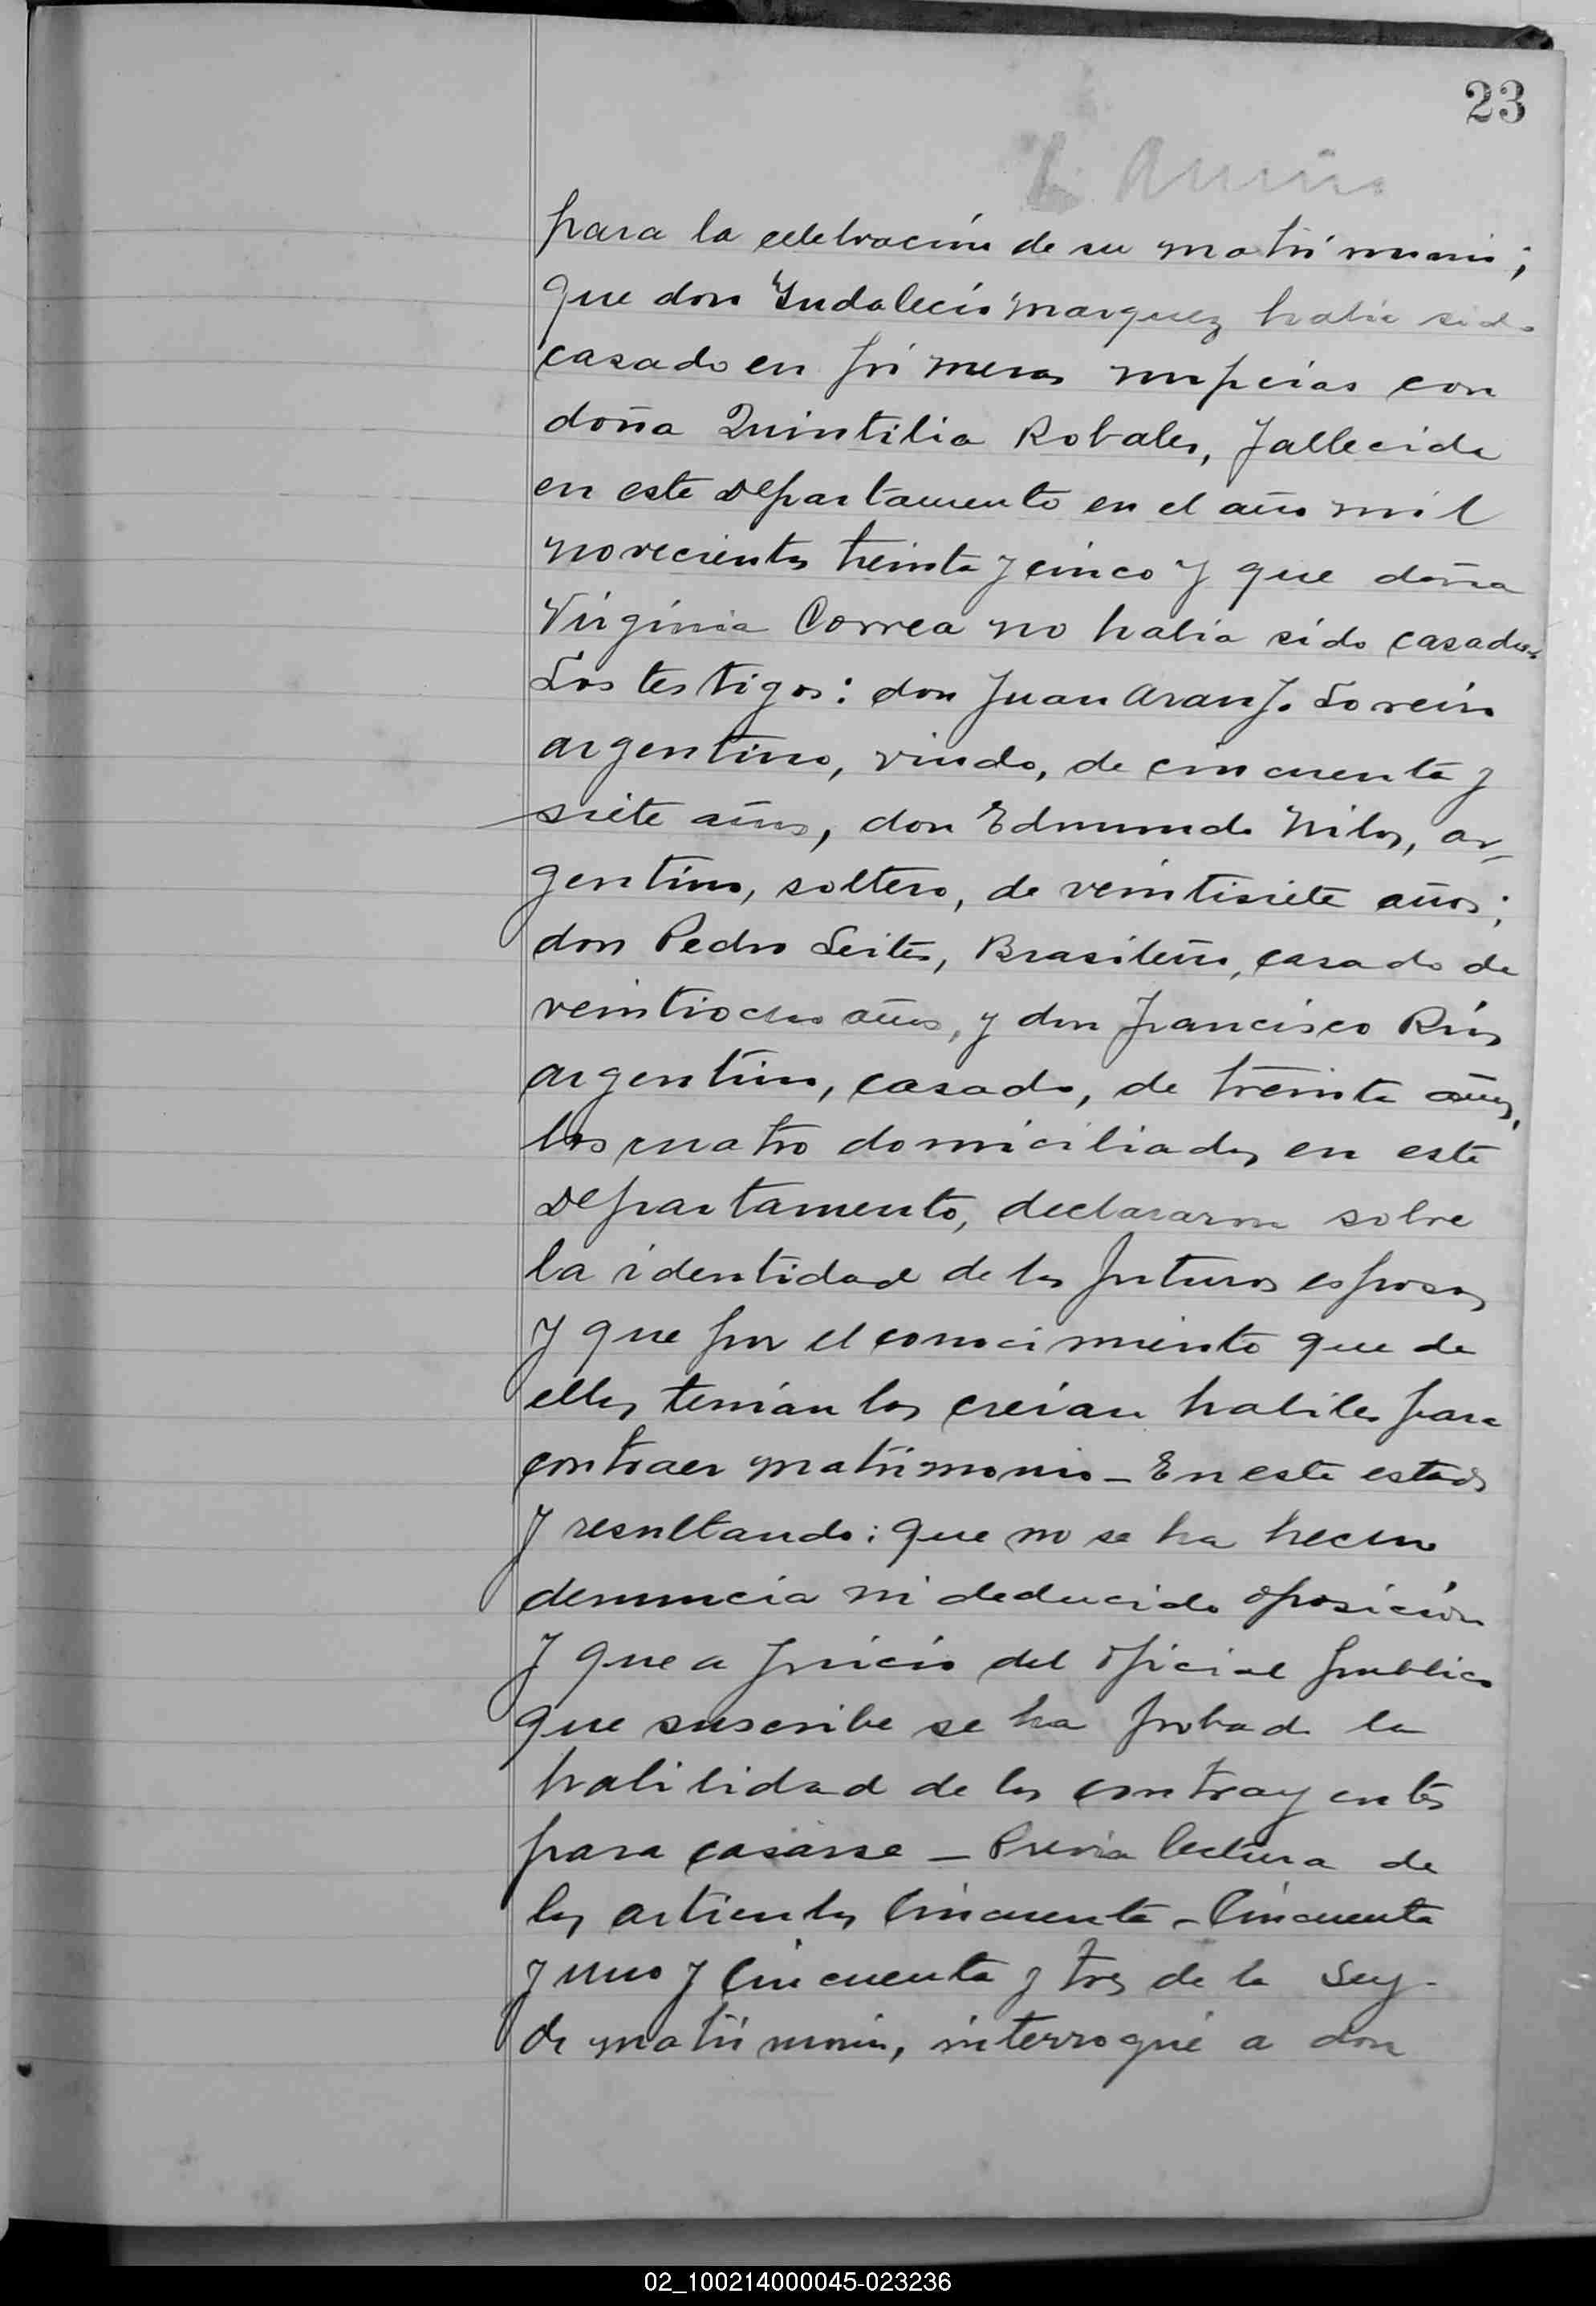 23
para la celebración de su matrimonio;
que don Indalecio Marquez habia sido
casado en primeras nupcias con
doña Quintilia Robales, fallecida
en este Departamento en el año mil
novecientos treinta y cinco y que doña
Virginia Correa no habia sido casada
Los testigos: don Juan
argentino, viudo, de cincuenta y
siete años, don Edmundo Nilos, ar-
gentino, soltero, de veintisiete años;
don Pedro Leites, Brasileño, casado de
veintiocho años, y don Francisco Rios
argentino, casado, de treinta años,
los cuatro domiciliados en este
Departamento, declararon sobre
la identidad de los futuros esposos
y que por el conocimiento que de
ellos tenían los creían habiles para
contraer matrimonio - En este estado
y resultando: que no se ha hecho
denuncia ni deducido oposición
y que a juicio del oficial publico
que suscribe se ha probado la
habilidad de los contrayentes
para casarse - Previa lectura de
los articulos Cincuenta - Cincuenta
y uno y Cincuenta y tres de la Ley
de matrimonio, interrogué a don
02_100214000045-023236